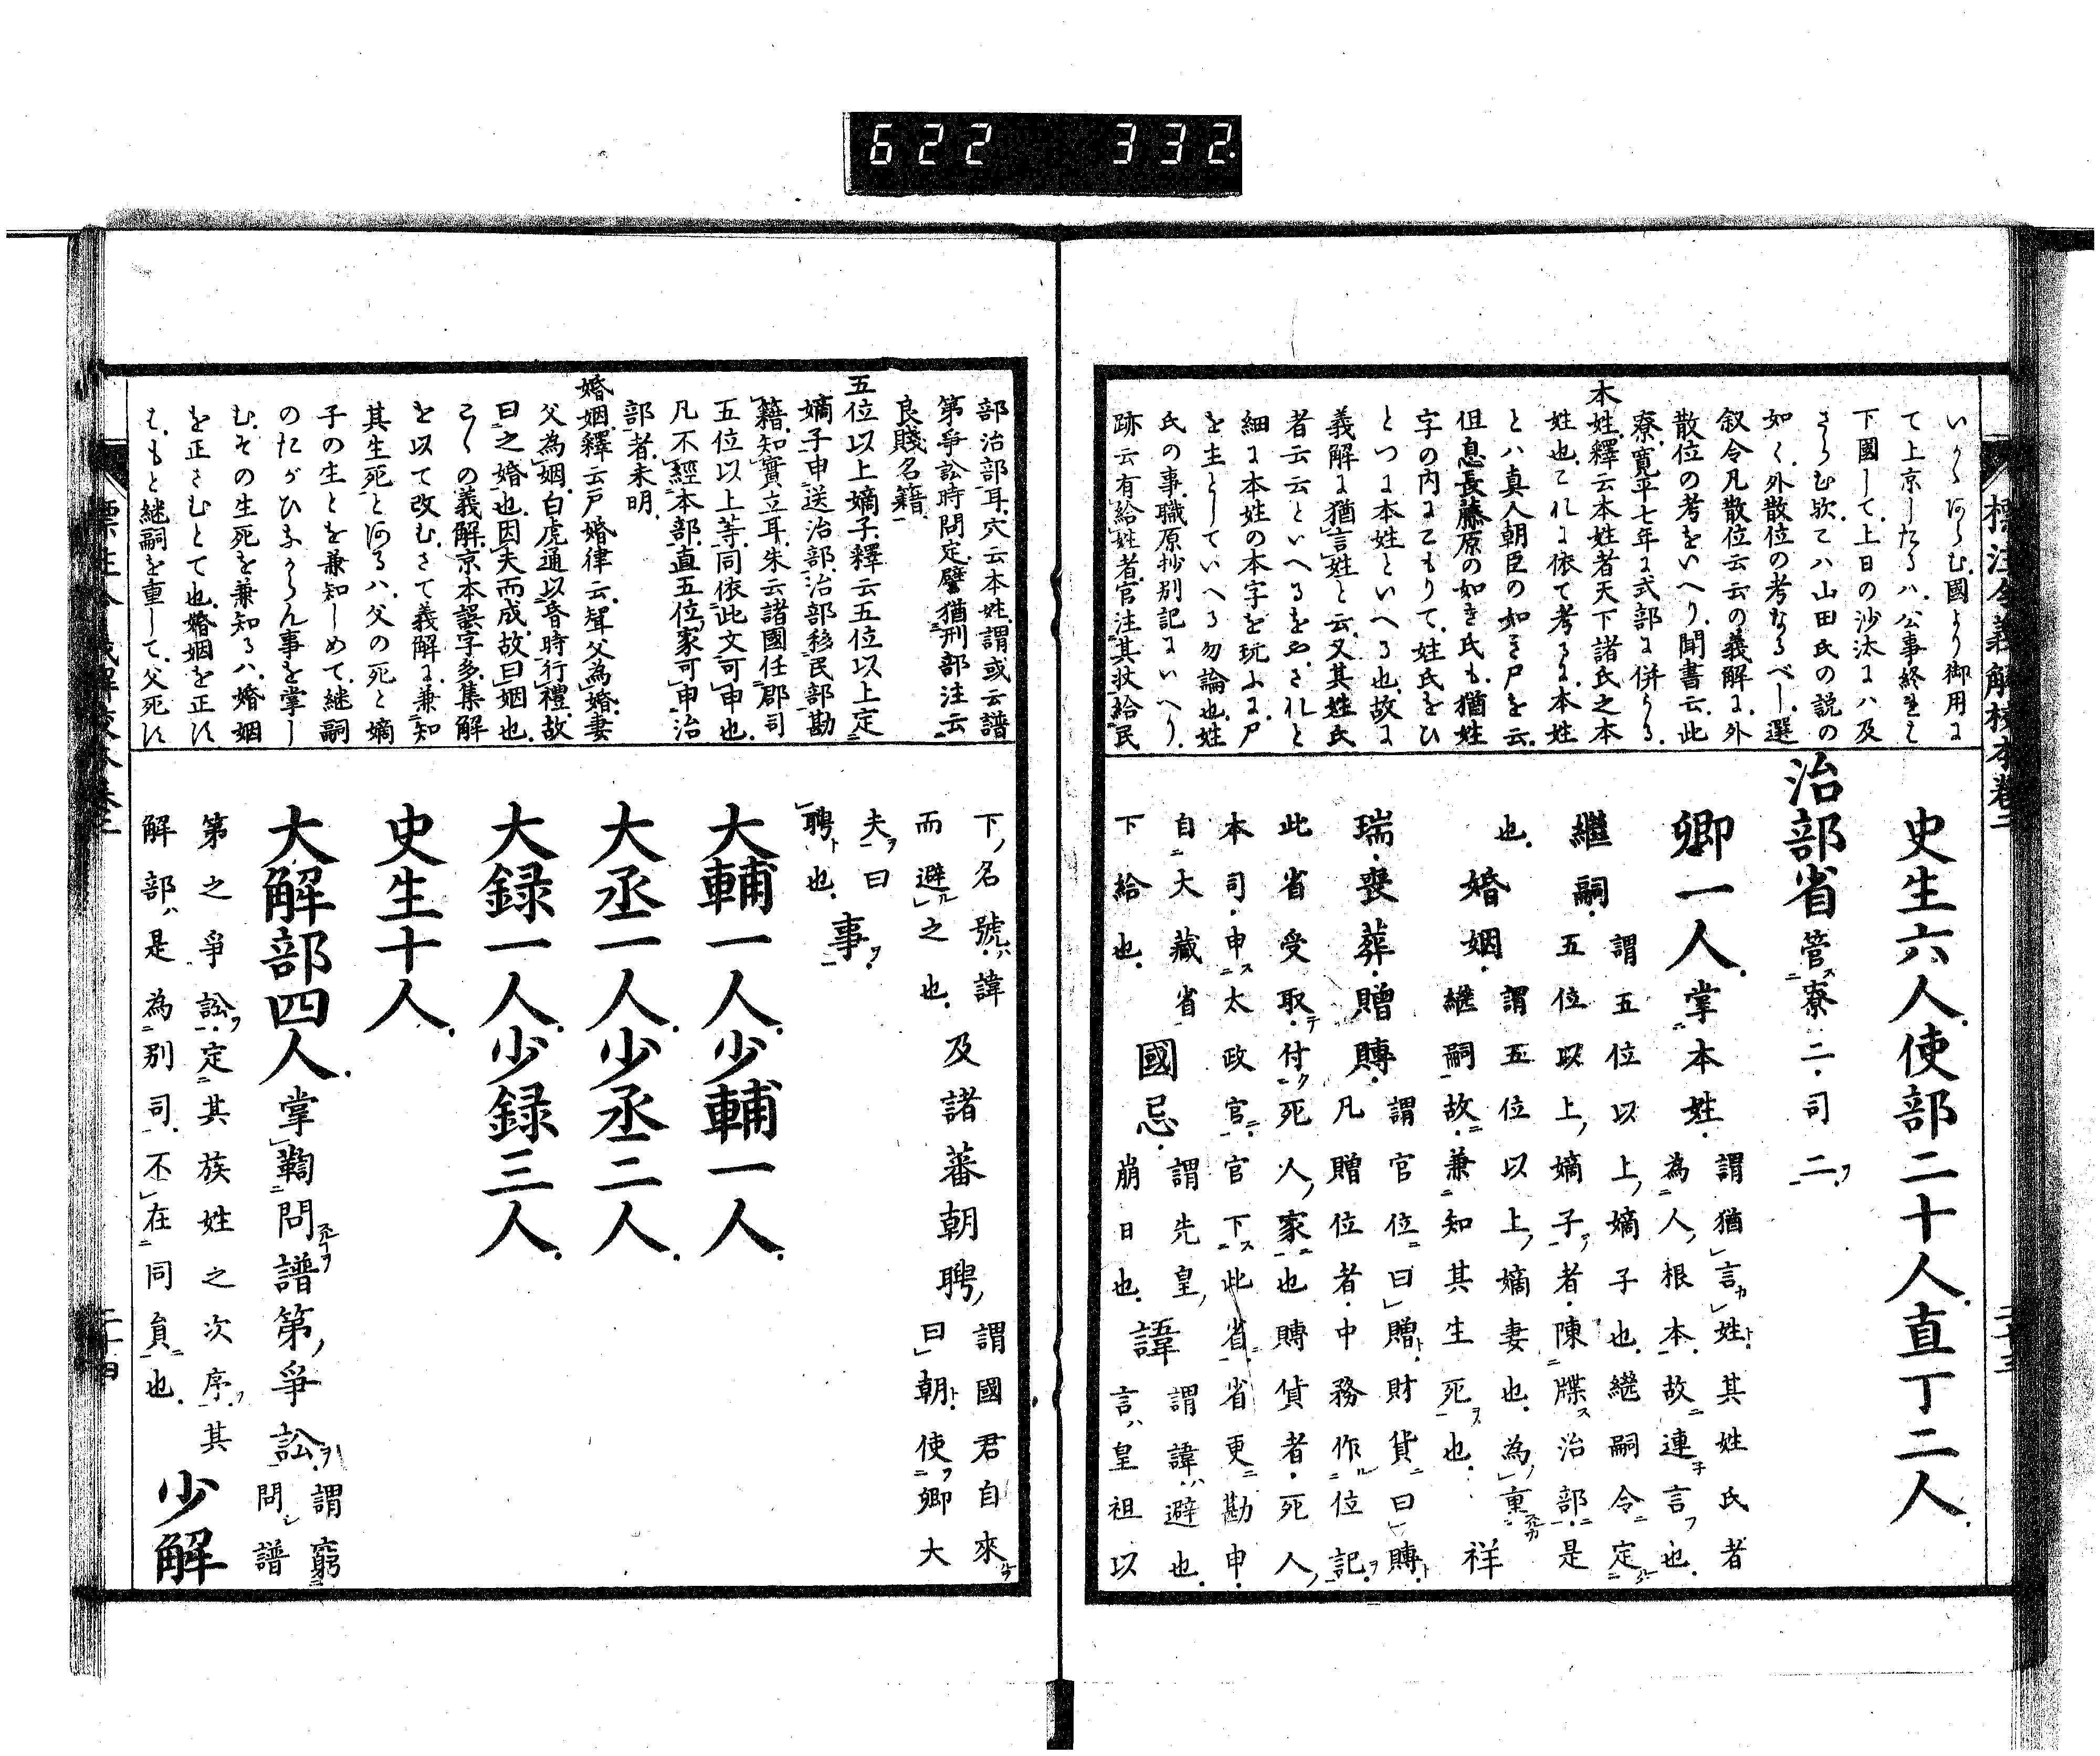 622 332
標注令義解校本卷二
いかゝあらむ國より御用に
て上京したるハ公事終りて
下國して上日の沙汰にハ及
さらむ歟こハ山田氏の説の
如く外散位の考なるべし選
叙令凡散位云云の義解に外
散位の考をいへり聞書云此
寮寛平七年に式部に併らる
本姓釋云本姓者天下諸氏之本
姓也これに依て考るに本姓
とハ真人朝臣の如き尸を云
但息長藤原の如き氏も猶姓
字の内にこもりて姓氏をひ
とつに本姓といへる也故に
義解に猶言姓と云又其姓氏
者云云といへるをやされと
細に本姓の本字を玩ふに尸
を主としていへる勿論也姓
氏の事職原抄別記にいへり
跡云有給姓者官注其状給民
史生六人使部二十人直丁二人
治部省管寮二司二
卿一人掌本姓謂猶言姓其姓氏者
為人根本故連言也
繼嗣謂五位以上嫡子也繼嗣令定
五位以上嫡子者陳牒治部是
也婚姻謂五位以上嫡妻也為重
繼嗣故兼知其生死也祥
瑞喪葬贈賻謂官位曰贈財貨曰賻
凡贈位者中務作位記
此省受取付死人家也賻貨者死人
本司申太政官官下此省省更勘申
自大藏省
下給也國忌謂先皇
崩日也諱謂諱避也
言皇祖以
部治部耳穴云本姓謂或云譜
第爭訟時問定譬猶刑部注云
良賤名籍
五位以上嫡子釋云五位以上定
嫡子申送治部治部移民部勘
籍知實立耳朱云諸國任郡司
五位以上等同依此文可申也
凡不經本部直五位家可申治
部者未明
婚姻釋云戸婚律云聟父為婚妻
父為姻白虎通以昏時行禮故
曰之婚也因夫而成故曰姻也
こゝの義解京本誤字多集解
を以て改むさて義解に兼知
其生死とあるハ父の死と嫡
子の生とを兼知しめて継嗣
のたがひなからん事を掌し
むその生死を兼知るハ婚姻
を正さむとて也婚姻を正す
は もと継嗣を重して父死す
下名號諱
而避之也及諸蕃朝聘謂國君自來
曰朝使卿大
夫曰
聘也事
大輔一人少輔一人
大丞一人少丞二人
大録一人少録三人
史生十人
大解部四人掌鞫問譜第爭訟謂窮
問譜
第之爭訟定其族姓之次序其
解部是為別司不在同員也少解